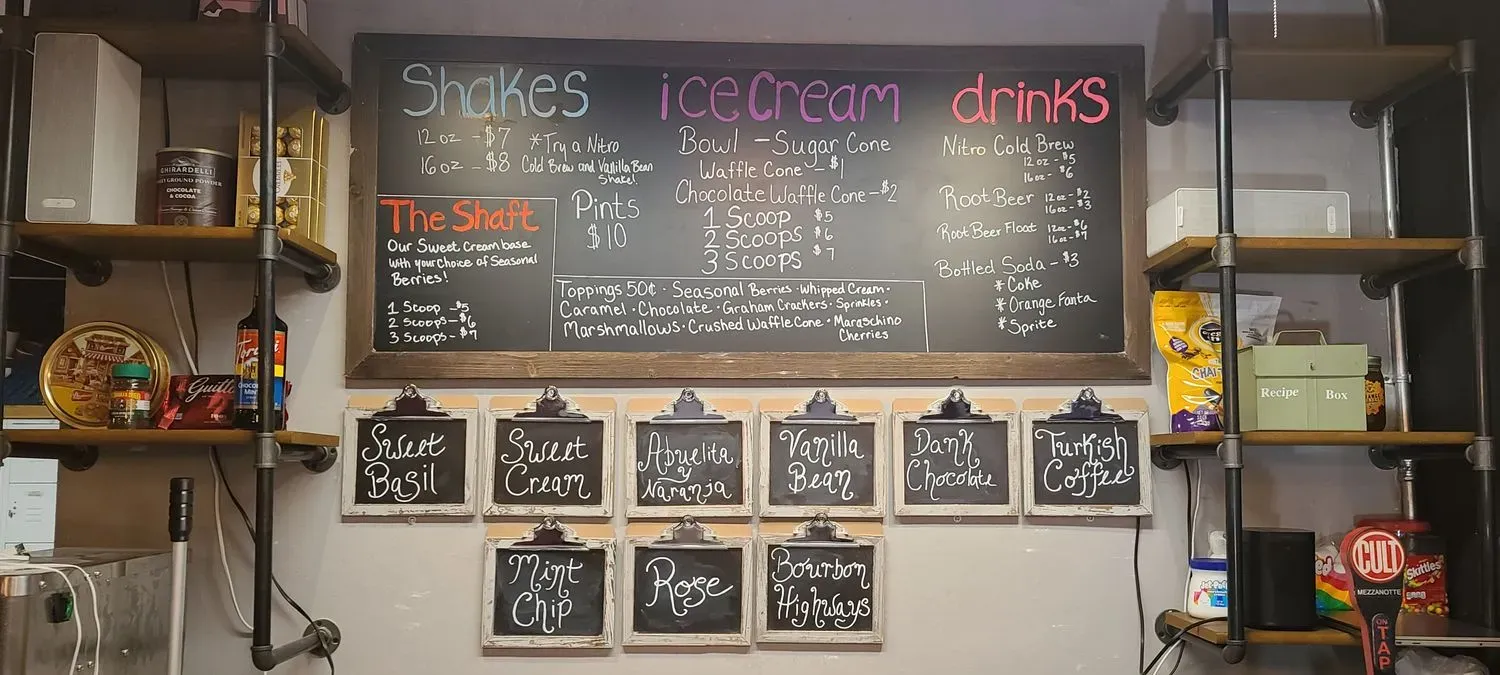 Shakes
12 oz - $7
16 oz - $8
*Try a Nitro
Cold Brew and Vanilla Bean
Shake!
The Shaft
Our Sweet Cream base
with your choice of Seasonal
Berries!
1 Scoop - $5
2 scoops - $6
3 Scoops - $7
Pints
$10
ice cream
Bowl - Sugar Cone
Waffle Cone - $1
Chocolate Waffle Cone - $2
1 Scoop $5
2 Scoops $6
3 Scoops $7
Toppings 50¢ · Seasonal Berries · Whipped Cream ·
Caramel · Chocolate · Graham Crackers · Sprinkles ·
Marshmallows · Crushed Waffle Cone · Maraschino
Cherries
drinks
Nitro Cold Brew
12 oz - $5
16 oz - $6
Root Beer 12 oz - $2
16 oz - $3
Root Beer Float 12 oz - $6
16 oz - $7
Bottled Soda - $3
* Coke
* Orange Fanta
* Sprite
Sweet
Basil
Sweet
Cream
Abuelita
y
Naranja
Vanilla
Bean
Dank
Chocolate
Turkish
Coffee
Mint
Chip
Rose
Bourbon
Highways
GHIRARDELLI
CHOCOLATE
& COCOA
Recipe Box
CULT
MEZZANOTTE
ON
TAP
Skittles